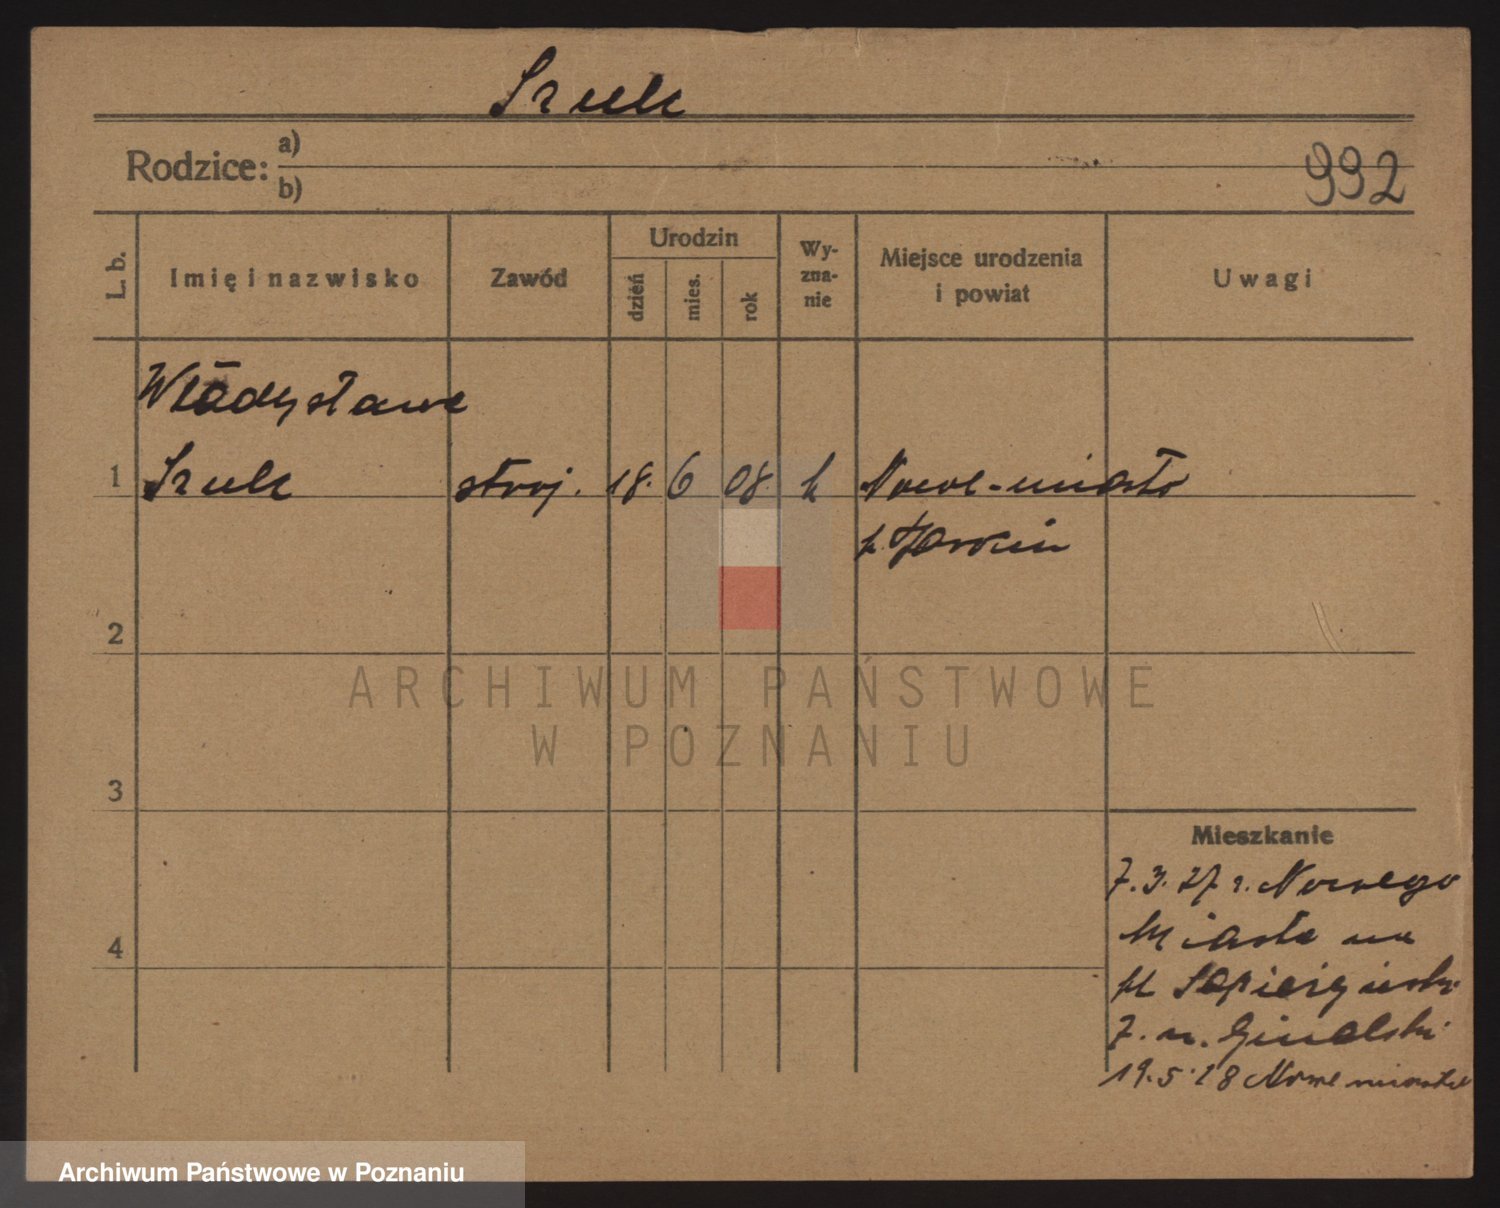 Szulc
Rodzice: a)
b)
992
L. b. Imię i nazwisko Zawód Urodzin dzień mies. rok Wy-zna-nie Miejsce urodzenia i powiat Uwagi
Władysława
1 Szulc stroj. 18. 6 08. k Nowe-miasto
p. Jarocin
2
ARCHIWUM PAŃSTWOWE
W POZNANIU
3
Mieszkanie
7.3.27 z. Nowego
4 Miasta na
Sapieżyński
7. u.
19.5.28 Nowe miasto
Archiwum Państwowe w Poznaniu